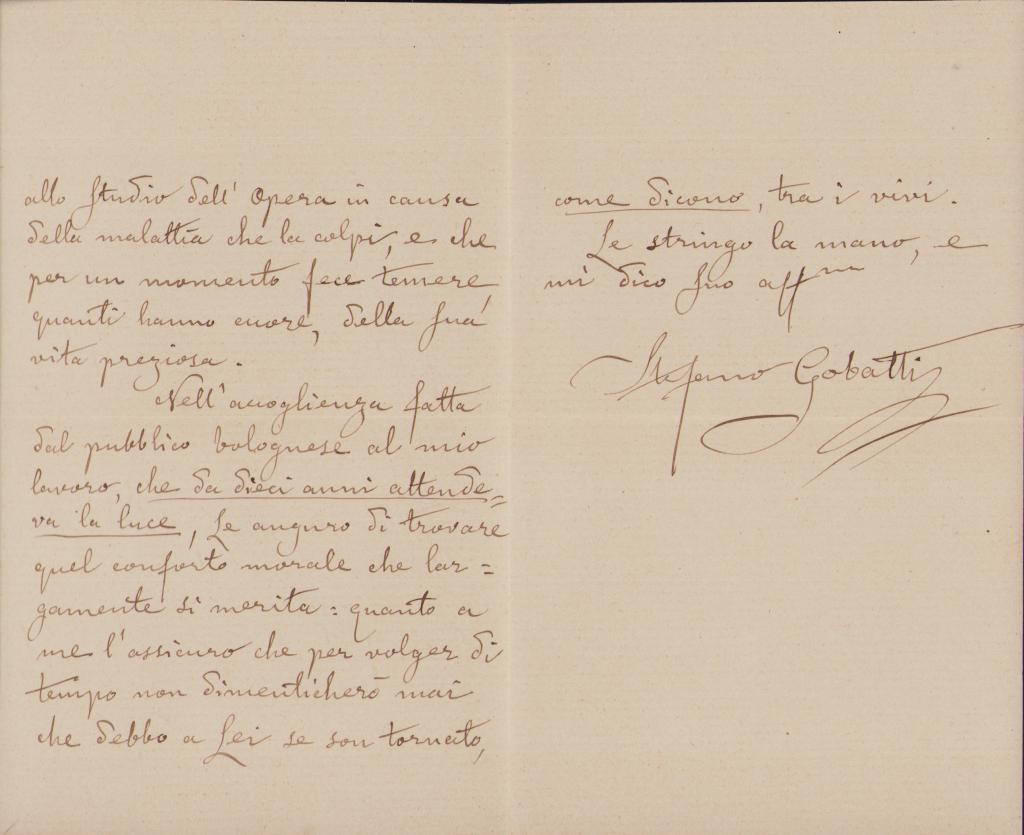 allo studio dell' Opera in causa
della malattia che la colpì, e che
per un momento fece temere,
quanti hanno cuore, della sua
vita preziosa.
Nell'accoglienza fatta
dal pubblico bolognese al mio
lavoro, che da dieci anni attende=
va la luce, Le auguro di trovare
quel conforto morale che lar=
gamente si merita: quanto a
me l'assicuro che per volger di
tempo non dimenticherò mai
che debbo a Lei se son tornato,
come dicono, tra i vivi.
Le stringo la mano, e
mi dico suo aff.mo
Stefano Gobatti